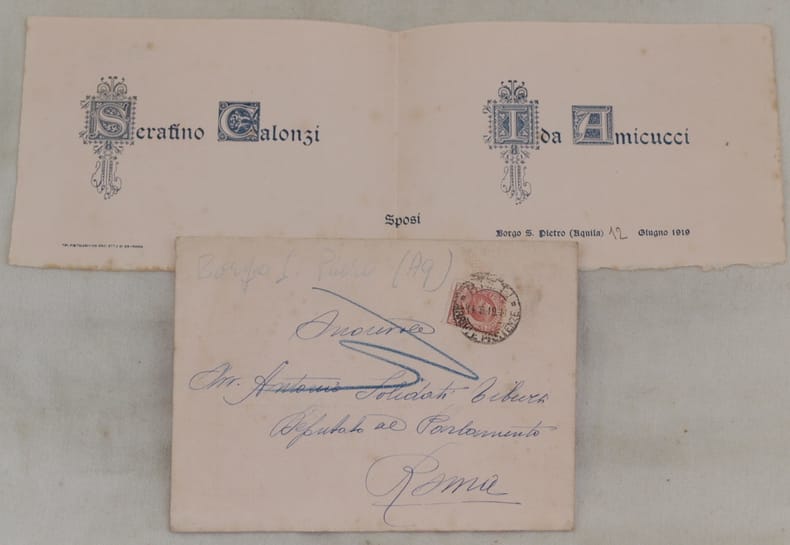 Serafino Calonzi
Ida Amicucci
Sposi
Borgo S. Pietro (Aquila) 12 Giugno 1919
Borgo S. Pietro (Aq)
On. Antonio Solidati Tiburzi
Deputato al Parlamento
Roma